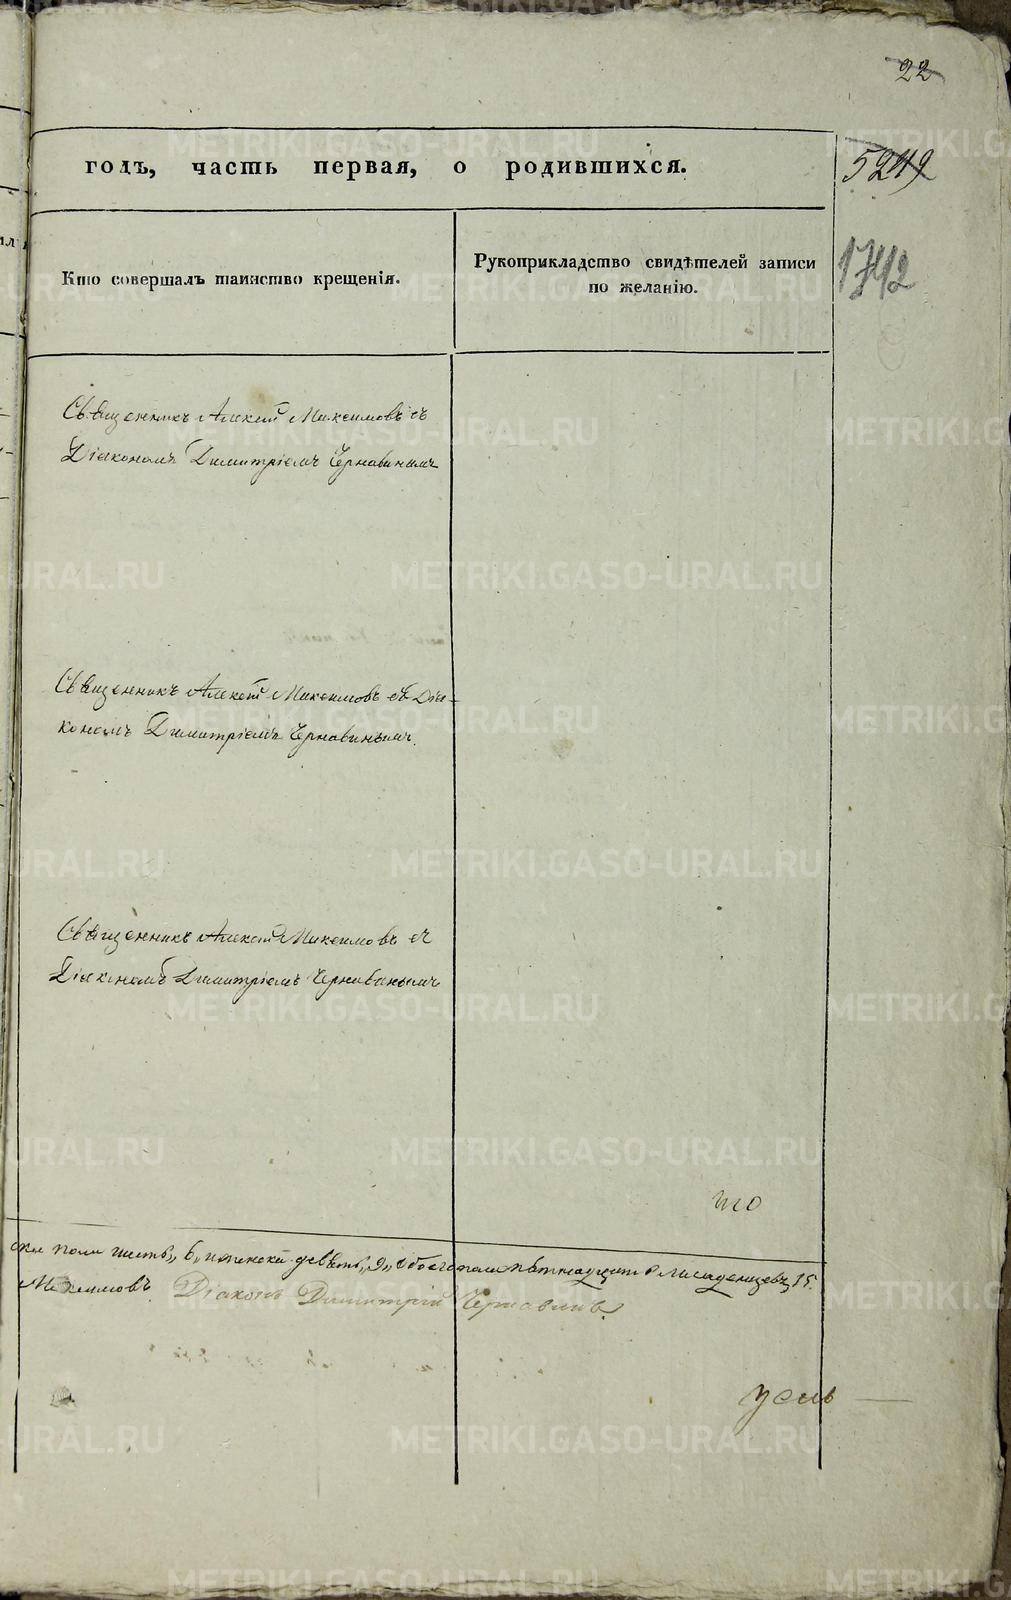 22
годъ, часть первая, о родившихся.
5249
Кто совершалъ таинство крещенія.
Рукоприкладство свидѣтелей записи
по желанію.
1742
Священникъ Алексѣй Максимовъ съ
Діакономъ Димитріемъ Чернавинымъ
Священникъ Алексѣй Максимовъ съ Діа-
кономъ Димитріемъ Чернавинымъ.
Священникъ Алексѣй Максимовъ съ
Діакономъ Димитріемъ Чернавинымъ
что
ска пола шесть, 6, и женска девять, 9, обоего пола пятнадцать младенцевъ, 15.
Максимовъ Діаконъ Димитрій Чернавинъ
METRIKI.GASO-URAL.RU